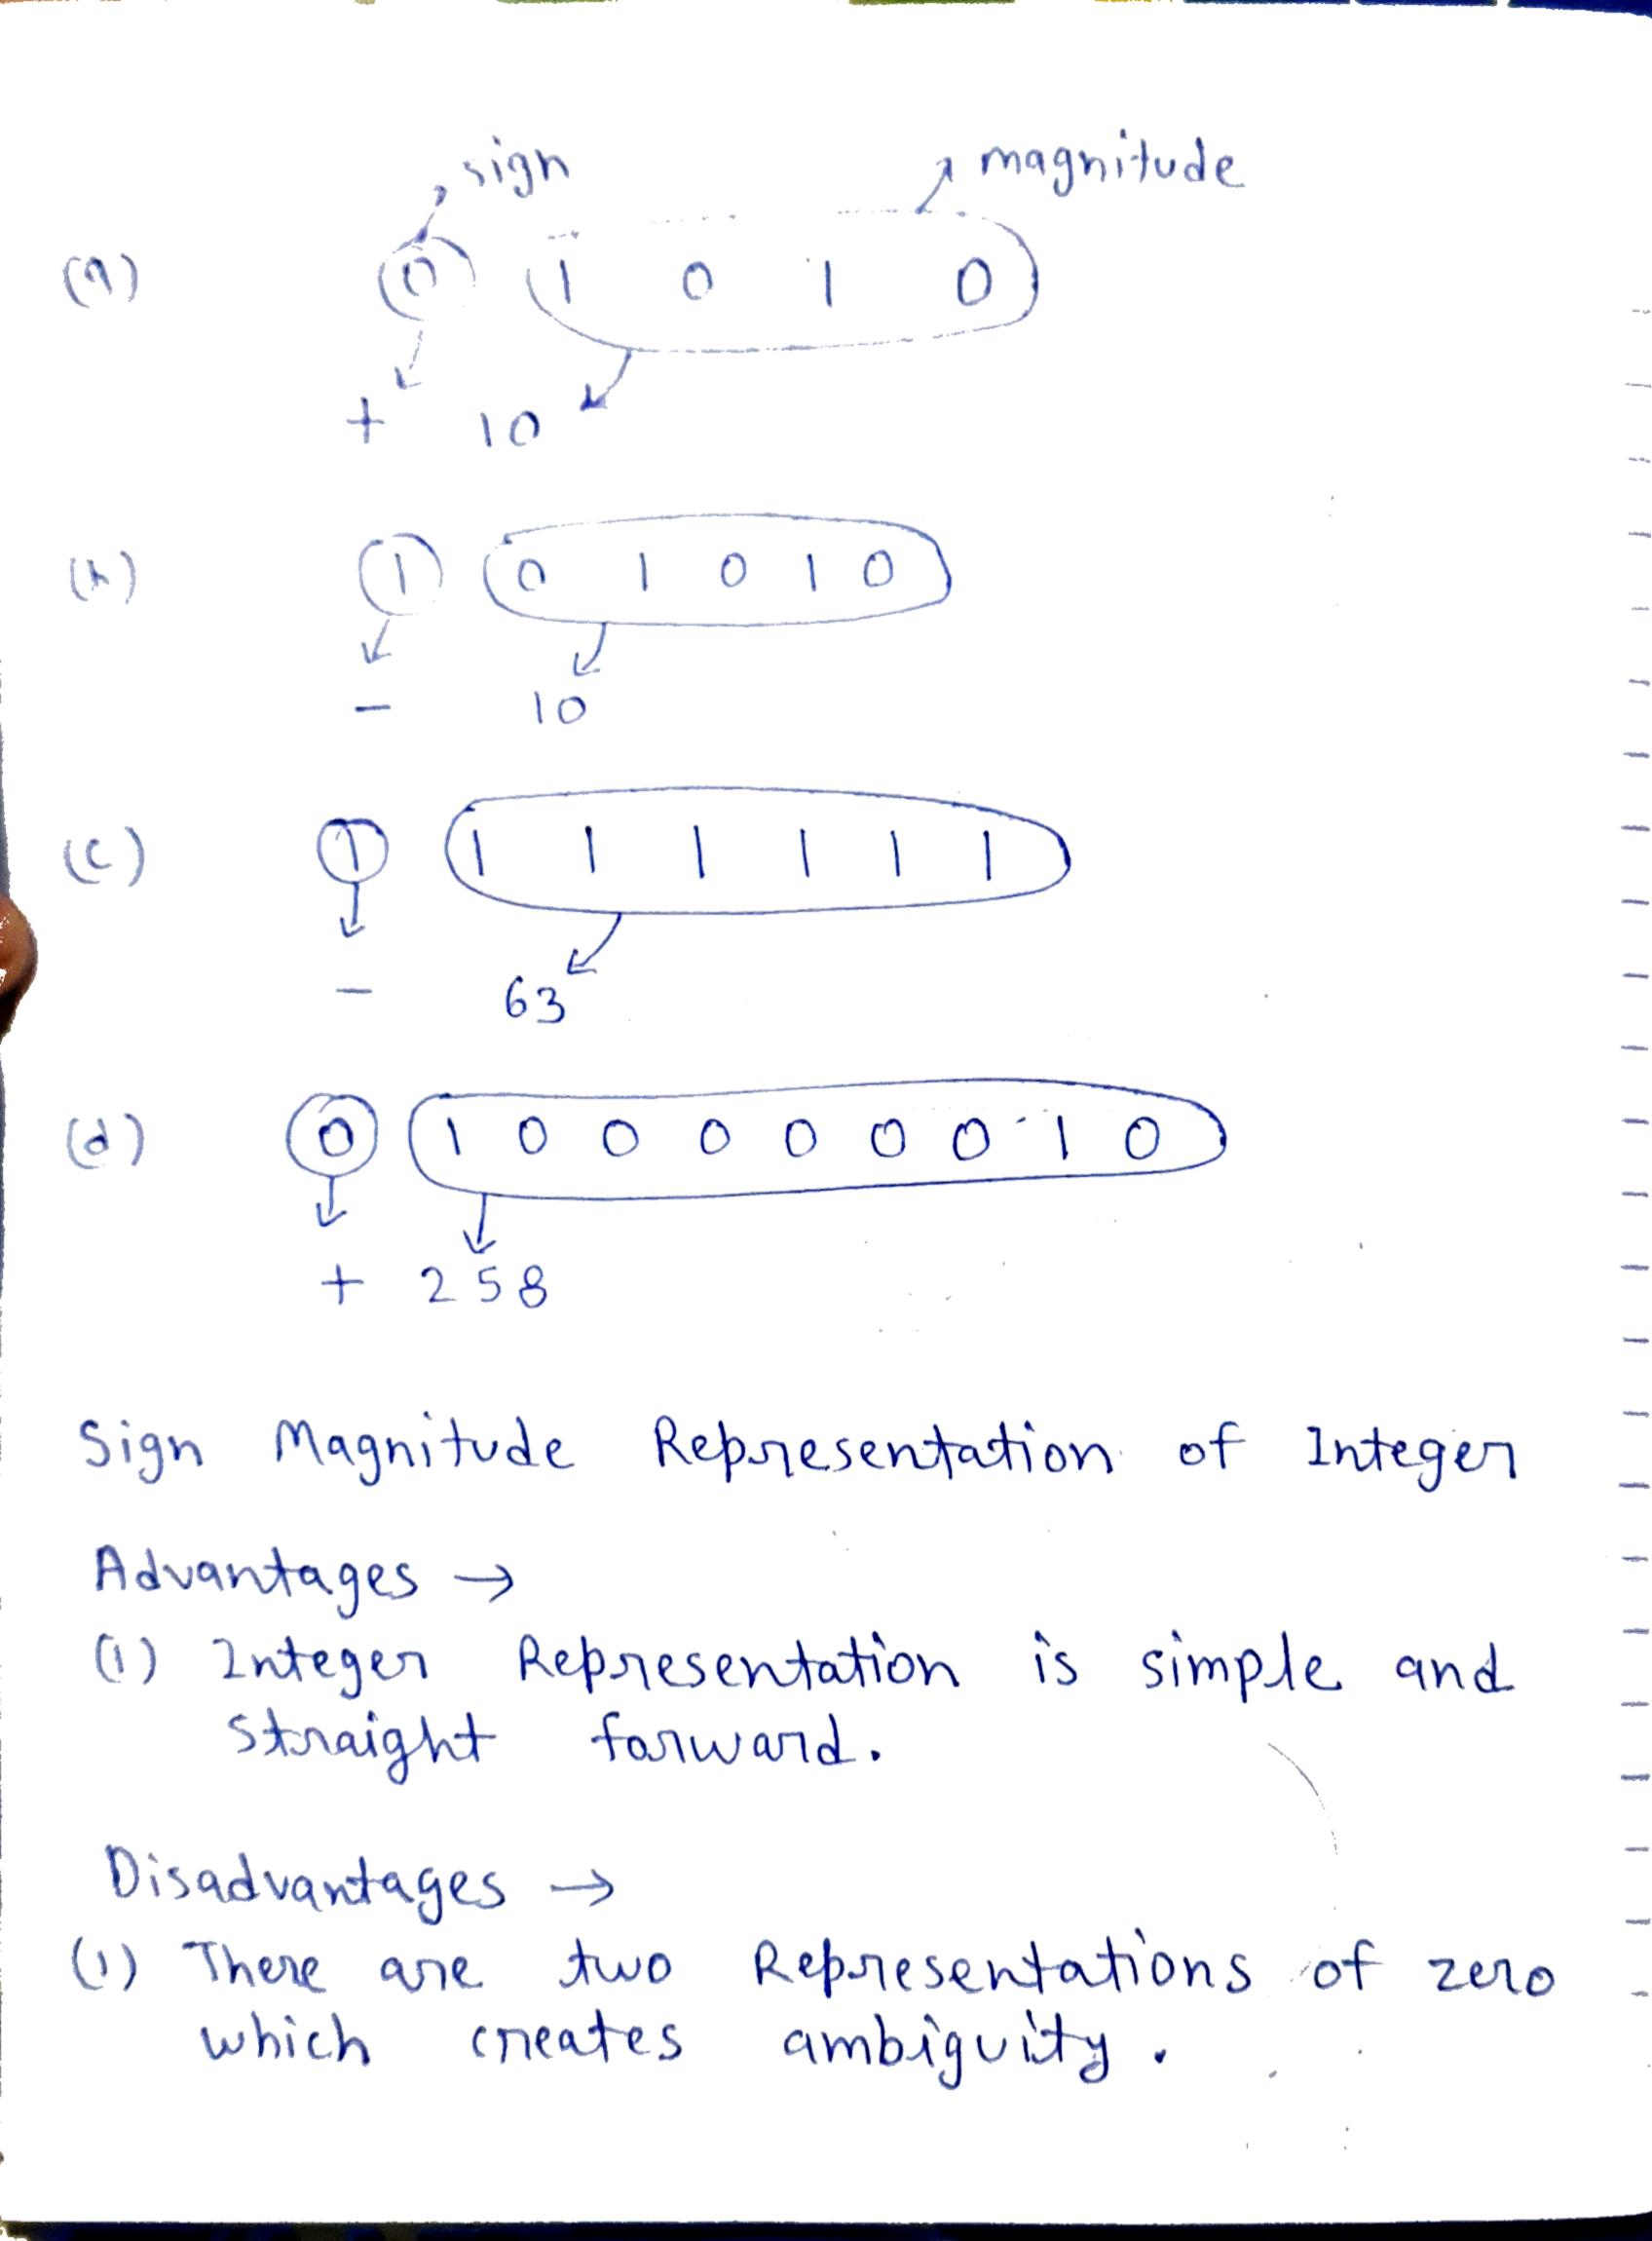 sign magnitude
(a) 0 1 0 1 0
+ 10
(b) 1 0 1 0 1 0
- 10
(c) 1 1 1 1 1 1 1
- 63
(d) 0 1 0 0 0 0 0 0 1 0
+ 258
Sign Magnitude Representation of Integer
Advantages →
(1) Integer Representation is simple and
straight forward.
Disadvantages →
(1) There are two Representations of zero
which creates ambiguity.